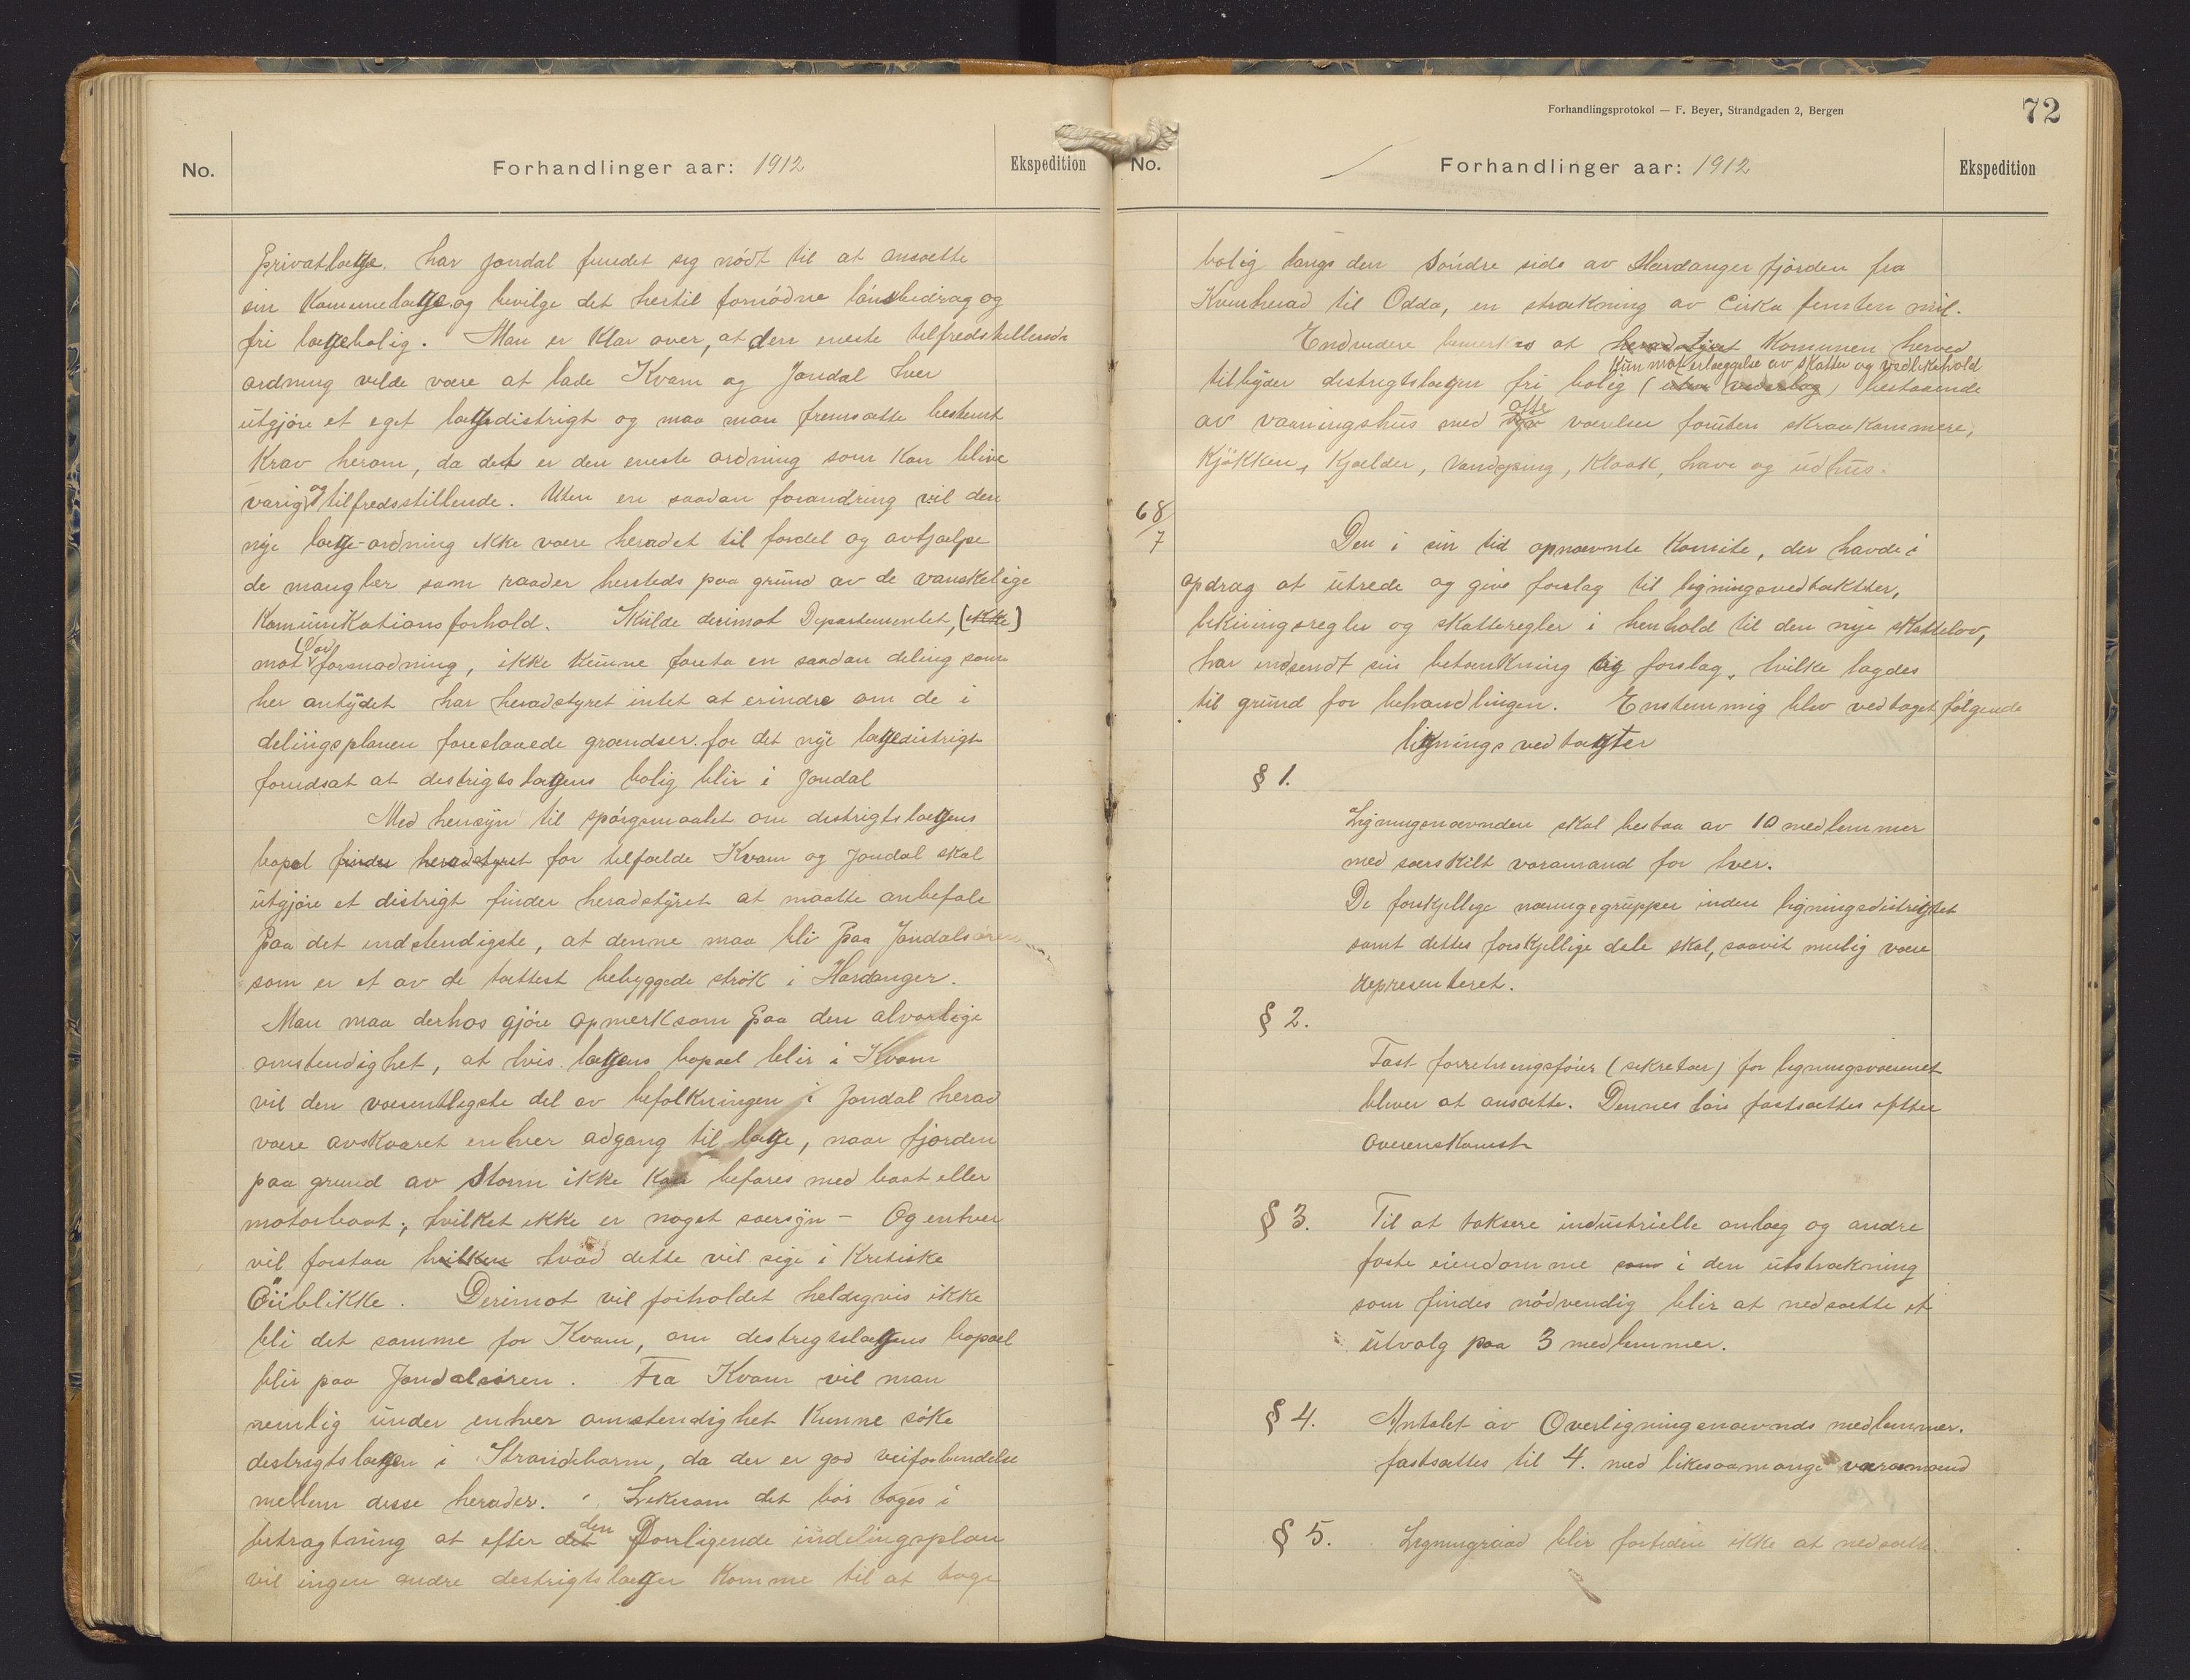 No.
Forhandlinger aar: 1912
Ekspedition
privatlæge. har Jondal fundet seg nødt til at ansætte
sin Komunelæge og bevilge det hertil fornødne lønsbidrag og
fri lægebolig. Man er klar over, at den eneste tilfredstillende
ordning vilde være at lade Kvam og Jondal hver
utgjøre et eget lægedistrigt og maa man fremsætte bestemt
Krav herom, da det er den eneste ordning som kan blive
varig og tilfredsstillende. Uten en saadan forandring vil den
nye læge-ordning ikke være heradet til fordel og avhjælpe
de mangler som raader hersteds paa grund av de vanskelige
Komunikationsforhold. Skulde derimot Departementet, (ikke)
mot (vor) formodning, ikke kunne foreta en saadan deling som
her antydet har heradstyret intet at erindre om de i
delingsplanen foreslaaede grændser for det nye lægedistrigt
forudsat at destrigtslægens bolig blir i Jondal
Med hensyn til spørgsmaalet om destrigtslægens
bopæl finder heradstyret for tilfælde Kvam og Jondal skal
utgjøre et distrigt finder heradstyret at maatte anbefale
paa det indstendigste, at denne maa bli paa Jondalsøren
som er et av de tættest bebyggede strøk i Hardanger.
Man maa derhos gjøre opmerksom paa den alvorlige
omstendighet, at hvis lægens bopæl blir i Kvam
vil den væsentligste del av befolkningen i Jondal herad
være avskaaret enhver adgang til læge, naar fjorden
paa grund av storm ikke kan befares med baat eller
motorbaat; hvilket ikke er noget særsyn – Og enhver
vil forstaa hvilken hvad dette vil sige i kritiske
Öiblikke. Derimot vil forholdet heldigvis ikke
bli det samme for Kvam, om destrigtslægens bopæl
blir paa Jondalsøren. Fra Kvam vil man
nemlig under enhver omstendighet kunne søke
destrigtslægen i Strandebarm, da der er god veiforbindelse
mellem disse herader. Likesom det bør tages i
betragtning at efter det den foreligende inndelingsplan
vil ingen andre destrigtslæger komme til at tage
Forhandlingsprotokol — F. Beyer, Strandgaden 2, Bergen
72
No.
Forhandlinger aar: 1912
Ekspedition
bolig langs den søndre side av Hardanger fjorden fra
Kvinherad til Odda, en strækning av cirka femten mil.
Endvidere bemerkes at heradstyret Komunen herved
kun mot erlæggelse av skatter og vedlikehold
tilbyder distrigtslægen fri bolig (uten vederlag) bestaaende
otte
av vaaningshus med værelser foruten skraakammere,
Kjøkken, kjælder, vandgang, kloak, have og udhus.
68/7
Den i sin tid opnævnte komite, der havde i
opdrag at utrede og give forslag til ligningsvedtækter,
likningsregler og skatteregler i henhold til den nye skattelov,
har indsendt sin betænkning og forslag, hvilke lagdes
til grund for behandlingen. Enstemmig blev vedtaget følgende
ligningsvedtægter
§ 1.
Ligningsnævnden skal bestaa av 10 medlemmer
med særskilt varamand for hver.
De forskjellige næringsgrupper inden ligningsdistriktet
samt dettes forskjellige dele skal, saavit mulig være
representeret.
§ 2.
Fast forretningsfører (sekretær) for ligningsvæsenet
bliver at ansætte. Dennes løn fastsættes efter
overenskomst
§ 3. Til at taksere industrielle anlæg og andre
faste eiendomme som i den utstrækning
som findes nødvendig blir at nedsætte et
utvalg paa 3 medlemmer.
§ 4. Antalet av Overligningsnævnds medlemmer.
fastsættes til 4. med likesaamange varamænd
§ 5. Ligningraad blir fortiden ikke at nedsætte.